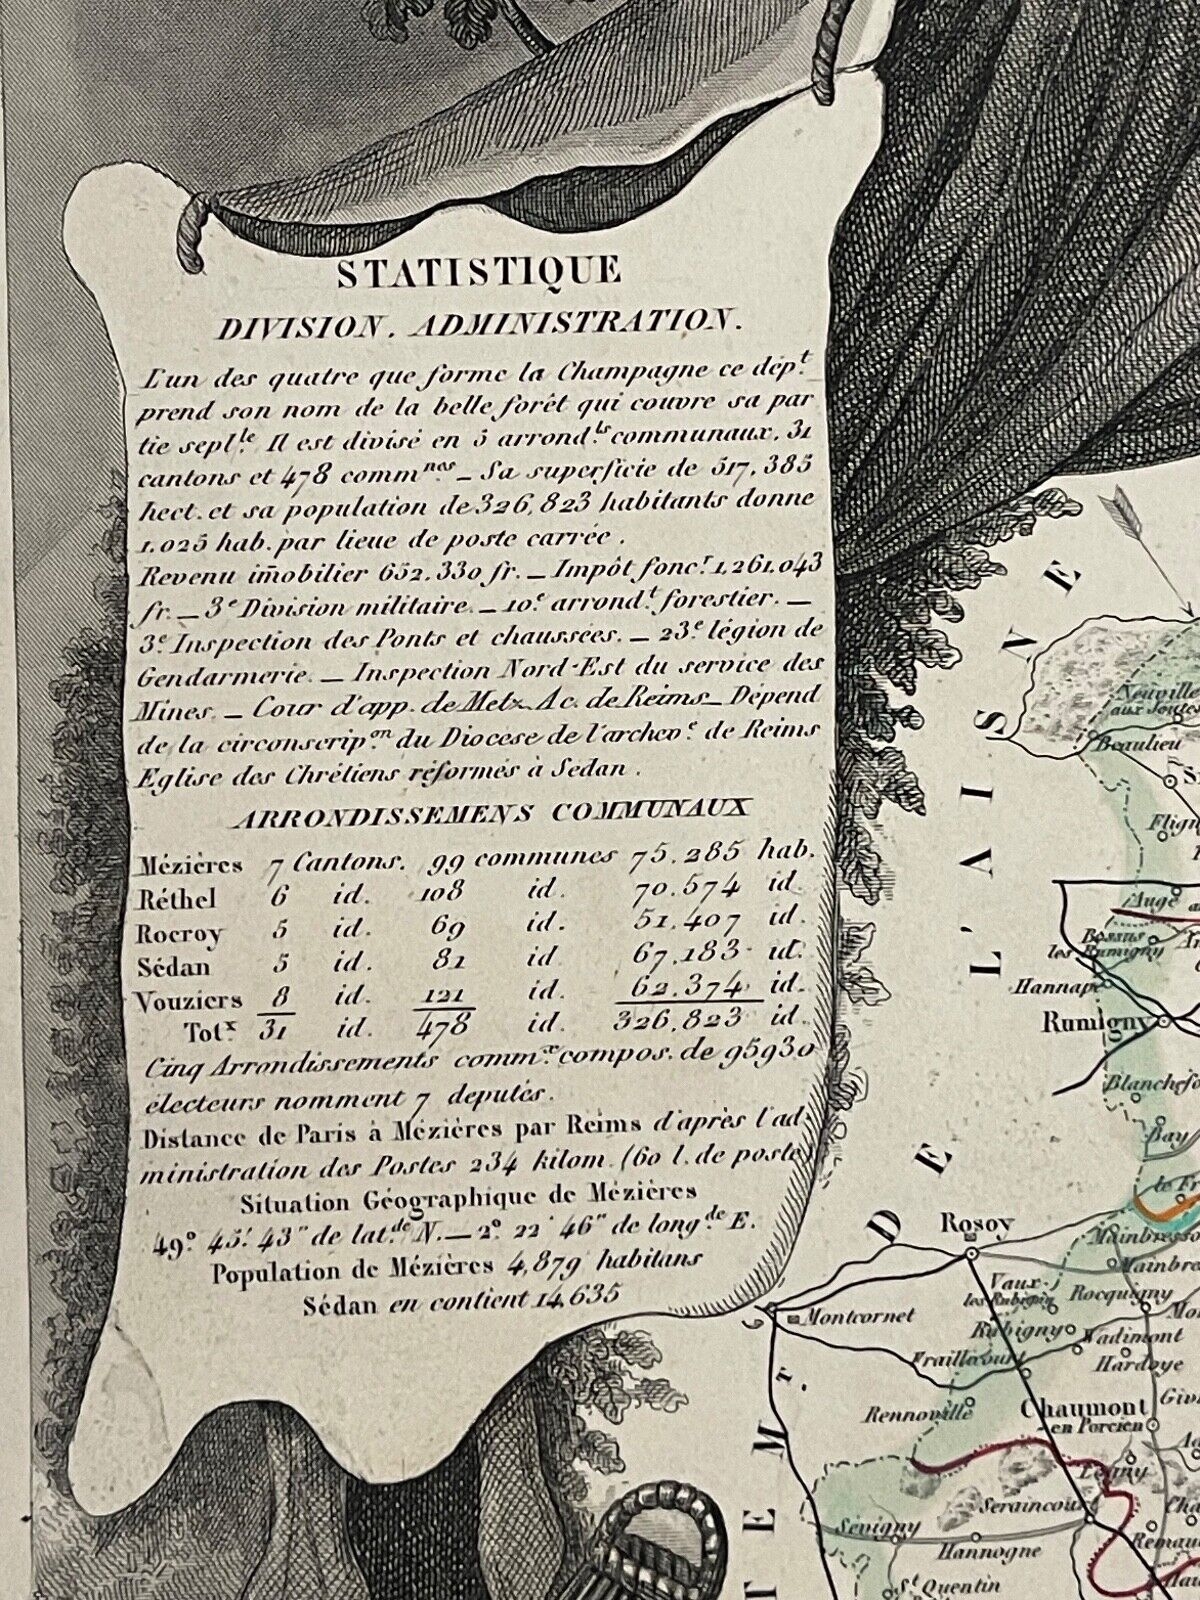 STATISTIQUE
DIVISION. ADMINISTRATION.
L'un des quatre que forme la Champagne ce dép.t
prend son nom de la belle forêt qui couvre sa par
tie sept.le Il est divisé en 5 arrond.ts communaux, 31
cantons et 478 comm.nes – Sa superficie de 517,385
hect. et sa population de 326,823 habitants donne
1,025 hab. par lieue de poste carrée.
Revenu im̄obilier 652,330 fr. – Impôt fonc.r 1,261,043
fr. – 3.e Division militaire. – 10.e arrond.t forestier. –
3.e Inspection des Ponts et chaussées. – 23.e légion de
Gendarmerie. – Inspection Nord-Est du service des
Mines. – Cour d'app. de Metz. Ac. de Reims – Dépend
de la circonscrip.on du Diocèse de l'archev.é de Reims
Eglise des Chrétiens réformés à Sedan.
ARRONDISSEMENS COMMUNAUX
Mézières 7 Cantons. 99 communes 75,285 hab.
Réthel 6 id. 108 id. 70,574 id.
Rocroy 5 id. 69 id. 51,407 id.
Sédan 5 id. 81 id. 67,183 id.
Vouziers 8 id. 121 id. 62,374 id.
Tot.x 31 id. 478 id. 326,823 id.
Cinq Arrondissements comm.x compos. de 95930
électeurs nomment 7 deputés.
Distance de Paris à Mézières par Reims d'après l'ad-
ministration des Postes 234 kilom. (60 l. de poste)
Situation Géographique de Mézières
49° 45' 43" de lat.de N. – 2° 22' 46" de long.de E.
Population de Mézières 4,879 habitans
Sédan en contient 14,635
L'AISNE
DE
TEMT.
Neuville
aux Joutes
Beaulieu
S
Flign
Auge
Bossus
les Rumigny
An
Hannap
Rumigny
Blanchefo
Bay
le Fr
Mainbresso
Mainbre
Rosoy
Vaux-
les Rubigny
Rocquigny
Montcornet
Rubigny
Wadimont
Mo
Fraillicourt
Hardoye
Rennoville
Chaumont
en Porcien
Givr
Logny
Seraincourt
Cha
Sévigny
Hannogne
Remau
St Quentin
Hau